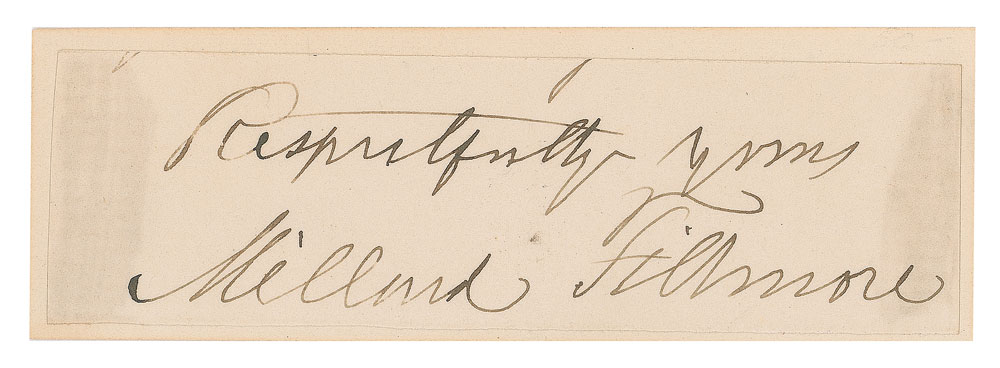 Respectfully yours
Millard Fillmore